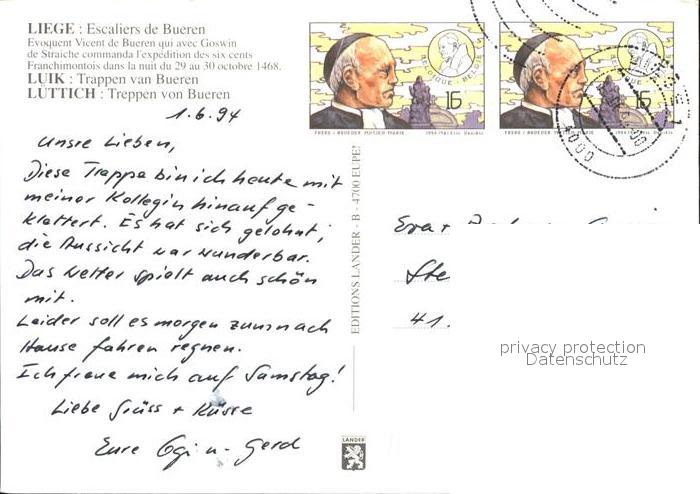 LIEGE : Escaliers de Bueren
Evoquent Vicent de Bueren qui avec Goswin
de Straiche commanda l'expédition des six cents
Franchimontois dans la nuit du 29 au 30 octobre 1468.
LUIK : Trappen van Bueren
LÜTTICH : Treppen von Bueren
1.6.94
Unsre Lieben,
Diese Trappe bin ich heute mit
meiner Kollegin hinauf ge-
klettert. Es hat sich gelohnt;
die Aussicht war wunderbar.
Das Wetter spielt auch schön
mit.
Leider soll es morgen zum nach
Hause fahren regnen.
Ich freue mich auf Samstag!
Liebe Grüss + Küsse
Eure Ogi u. Gerd
EDITIONS LANDER - B - 4700 EUPE
LANDER
BELGIQUE - BELGIË
16
FRERE - BROEDER MUTIEN-MARIE
1994
BELGIQUE - BELGIË
16
FRERE - BROEDER MUTIEN-MARIE
1994
Eva +
Ste
41.
privacy protection
Datenschutz